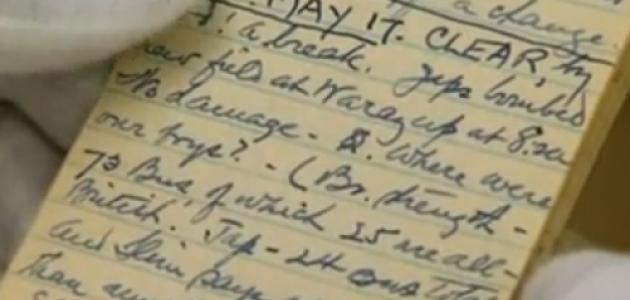 a change.
MAY 17. CLEAR, by
! a break. Japs bombed
new field at Warazup at 8:20
No damage. - Q. Where were
our boys? - (Br. strength -
73 Bns, of which 25 are all-
British. Jap - 24 Bns Total
and Slim says
Than